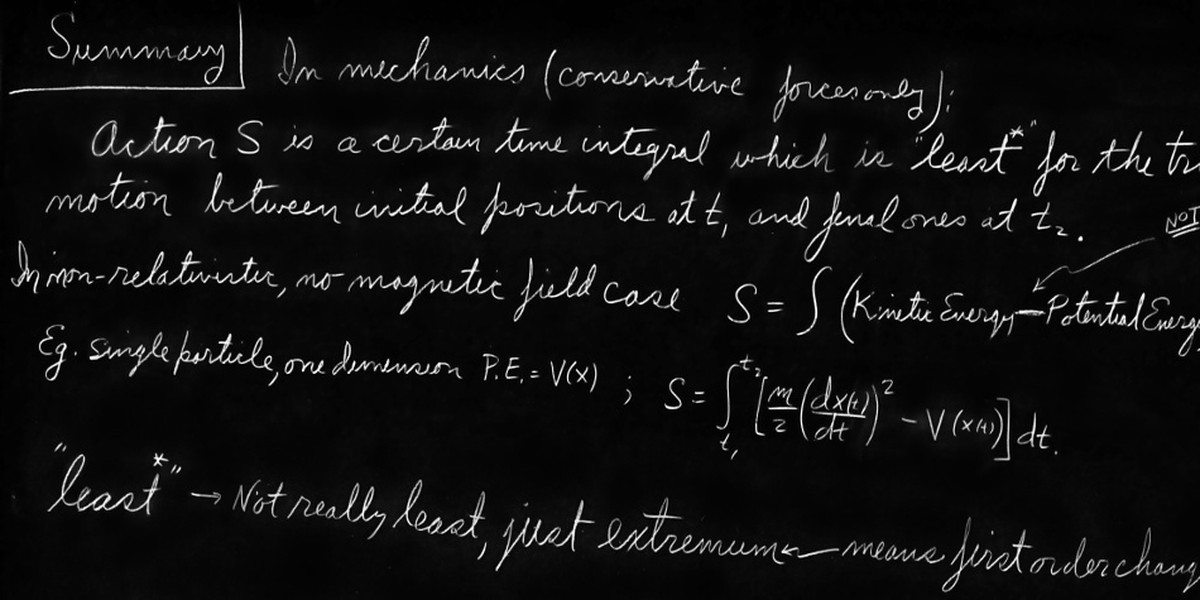 Summary
In mechanics (conservative forces only):
Action S is a certain time integral which is "least*" for the
motion between initial positions at t₁ and final ones at t₂.
NOT
In non-relativistic, no-magnetic field case S = ∫ (Kinetic Energy – Potential Energy
Eg. single particle, one dimension P.E. = V(x) ; S = ∫_{t₁}^{t₂} [m/2 (dx(t)/dt)² – V(x(t))] dt.
"least*" → Not really least, just extremum ← means first order chang